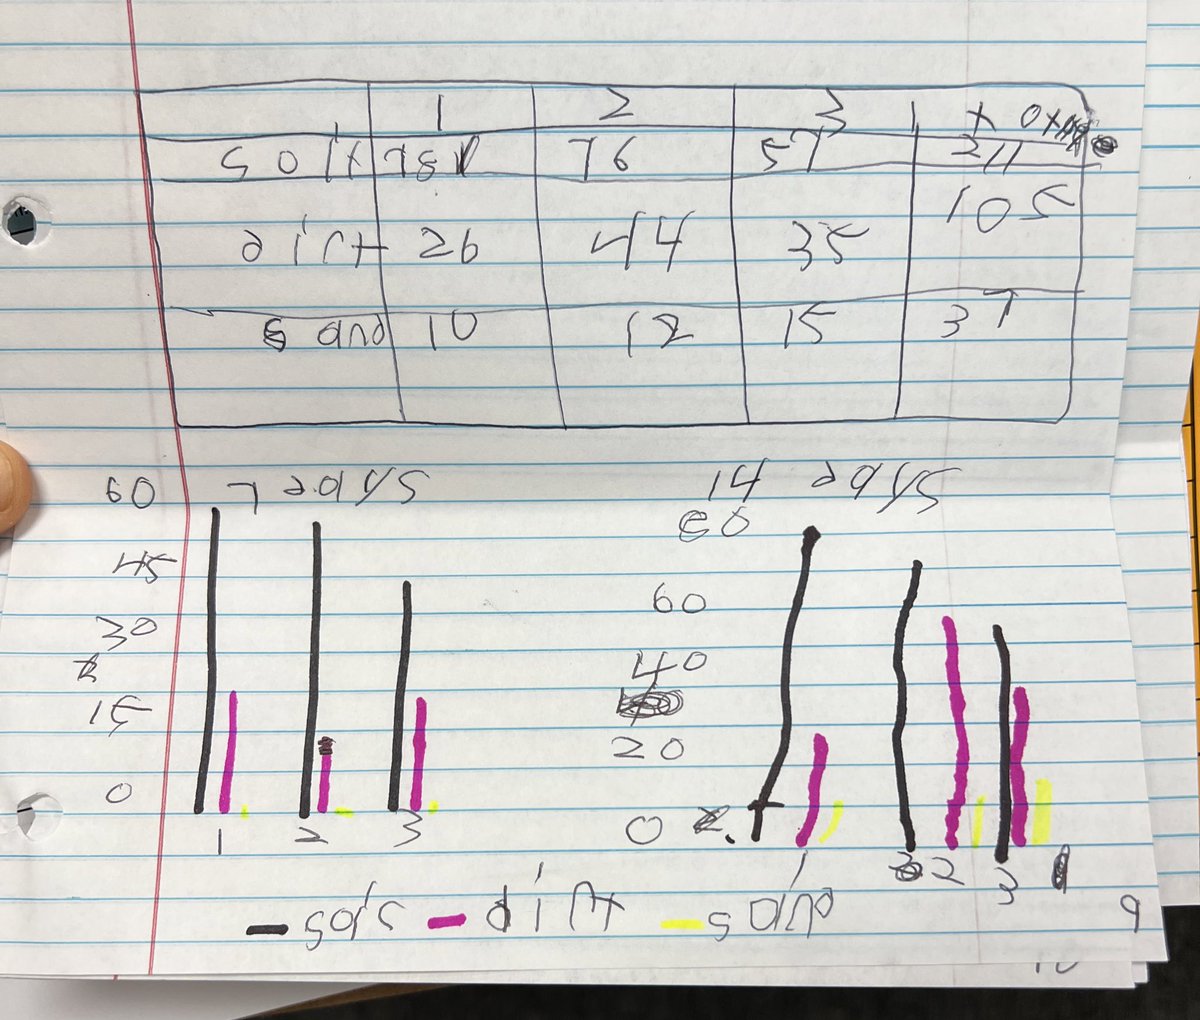 1 2 3
solt 78 76 57 211
dirt 26 44 35 105
sand 10 12 15 37
7 days
60
45
30
15
0
1 2 3
14 days
80
60
40
20
0
1 2 3
dirt sand
9